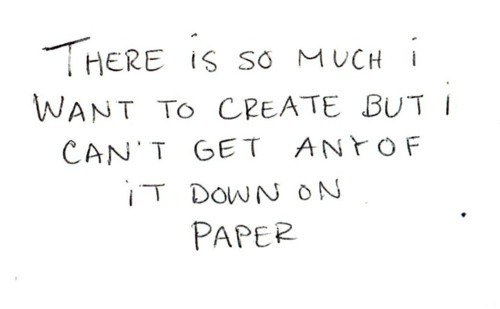 THERE iS SO MUCH i
WANT TO CREATE BUT i
CAN'T GET ANY OF
iT DOWN ON
PAPER